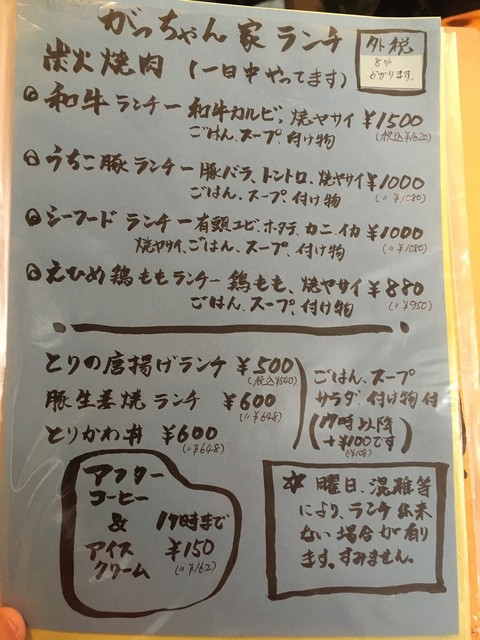 がっちゃん家ランチ
炭火焼肉 (一日中やってます)
外税
8%
かかります。
和牛ランチー和牛カルビ、焼ヤサイ ¥1500
ごはん、スープ、付け物 (税込¥1620)
うちこ豚ランチー豚バラ、トントロ、焼ヤサイ ¥1000
ごはん、スープ、付け物 (〃¥1080)
シーフードランチー有頭エビ、ホタテ、カニ、イカ ¥1000
焼ヤサイ、ごはん、スープ、付け物 (〃¥1080)
えひめ鶏ももランチー鶏もも、焼ヤサイ ¥880
ごはん、スープ、付け物 (〃¥950)
とりの唐揚げランチ ¥500
(税込¥540)
豚生姜焼ランチ ¥600
(〃¥648)
とりかわ丼 ¥600
(〃¥648)
ごはん、スープ
サラダ、付け物付
(17時以降
+¥100です)
(¥108)
アフター
コーヒー
& 17時まで
アイス ¥150
クリーム (〃¥162)
☆曜日、混雑等
により、ランチ出来
ない場合が有り
ます。すみません。